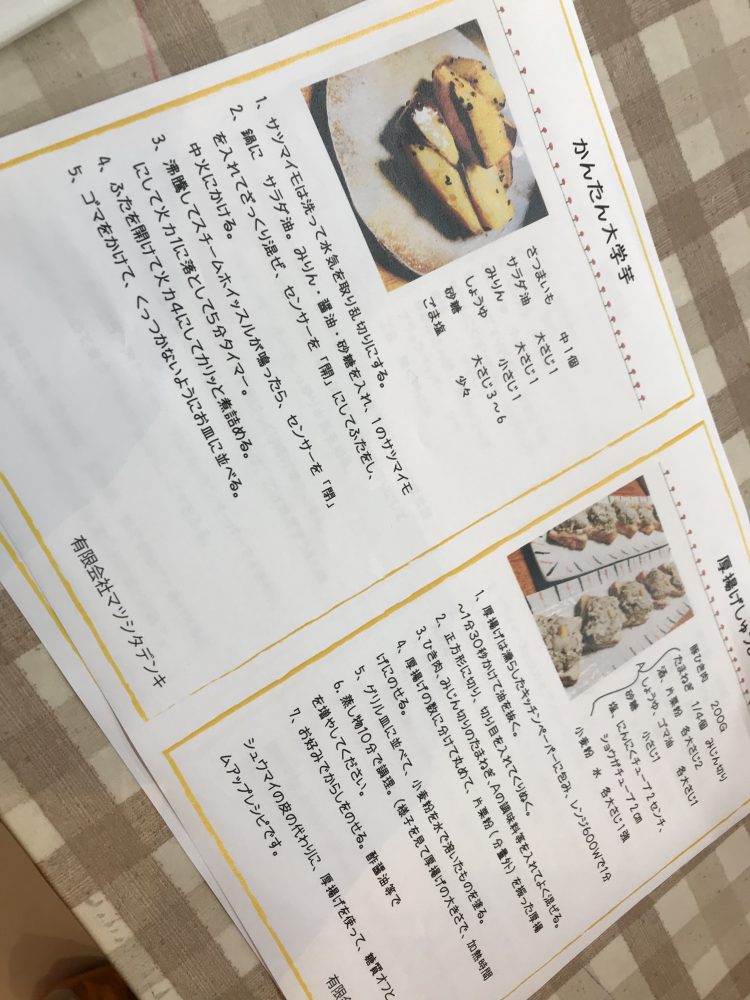 かんたん大学芋
さつまいも 中1個
サラダ油 大さじ1
みりん 大さじ1
しょうゆ 小さじ1
砂糖 大さじ3～6
ごま塩 少々
1、サツマイモは洗って水気を取り乱切りにする。
2、鍋に サラダ油。みりん・醤油・砂糖を入れ、1のサツマイモ
を入れてざっくり混ぜ、センサーを「開」にしてふたをし、
中火にかける。
3、沸騰してスチームホイッスルが鳴ったら、センサーを「閉」
にして火力1に落として5分タイマー。
4、ふたを開けて火力4にしてカリッと煮詰める。
5、ゴマをかけて、くっつかないようにお皿に並べる。
有限会社マツシタデンキ
厚揚げしゅう
豚ひき肉 200G
たまねぎ 1/4個 みじん切り
酒、片栗粉 各大さじ2
しょうゆ、ゴマ油 各大さじ1
A 砂糖 小さじ1
塩、にんにくチューブ2センチ、
ショウガチューブ2㎝
小麦粉 水 各大さじ1強
1、厚揚げは濡らしたキッチンペーパーに包み、レンジ600Wで1分
～1分30秒かけて油を抜く。
2、正方形に切り、切り目を入れてくりぬく。
3、ひき肉、みじん切りのたまねぎ、Aの調味料等を入れてよく混ぜる。
4、厚揚げの数に分けて丸めて、片栗粉(分量外)を振った厚揚
げにのせる。
5、グリル皿に並べて、小麦粉を水で溶いたものを塗る。
6、蒸し物10分で調理。(様子を見て厚揚げの大きさで、加熱時間
を増やしてください。
7、お好みでからしをのせる。酢醤油等で
シュウマイの皮の代わりに、厚揚げを使って、糖質オフと
ムアップレシピです。
有限